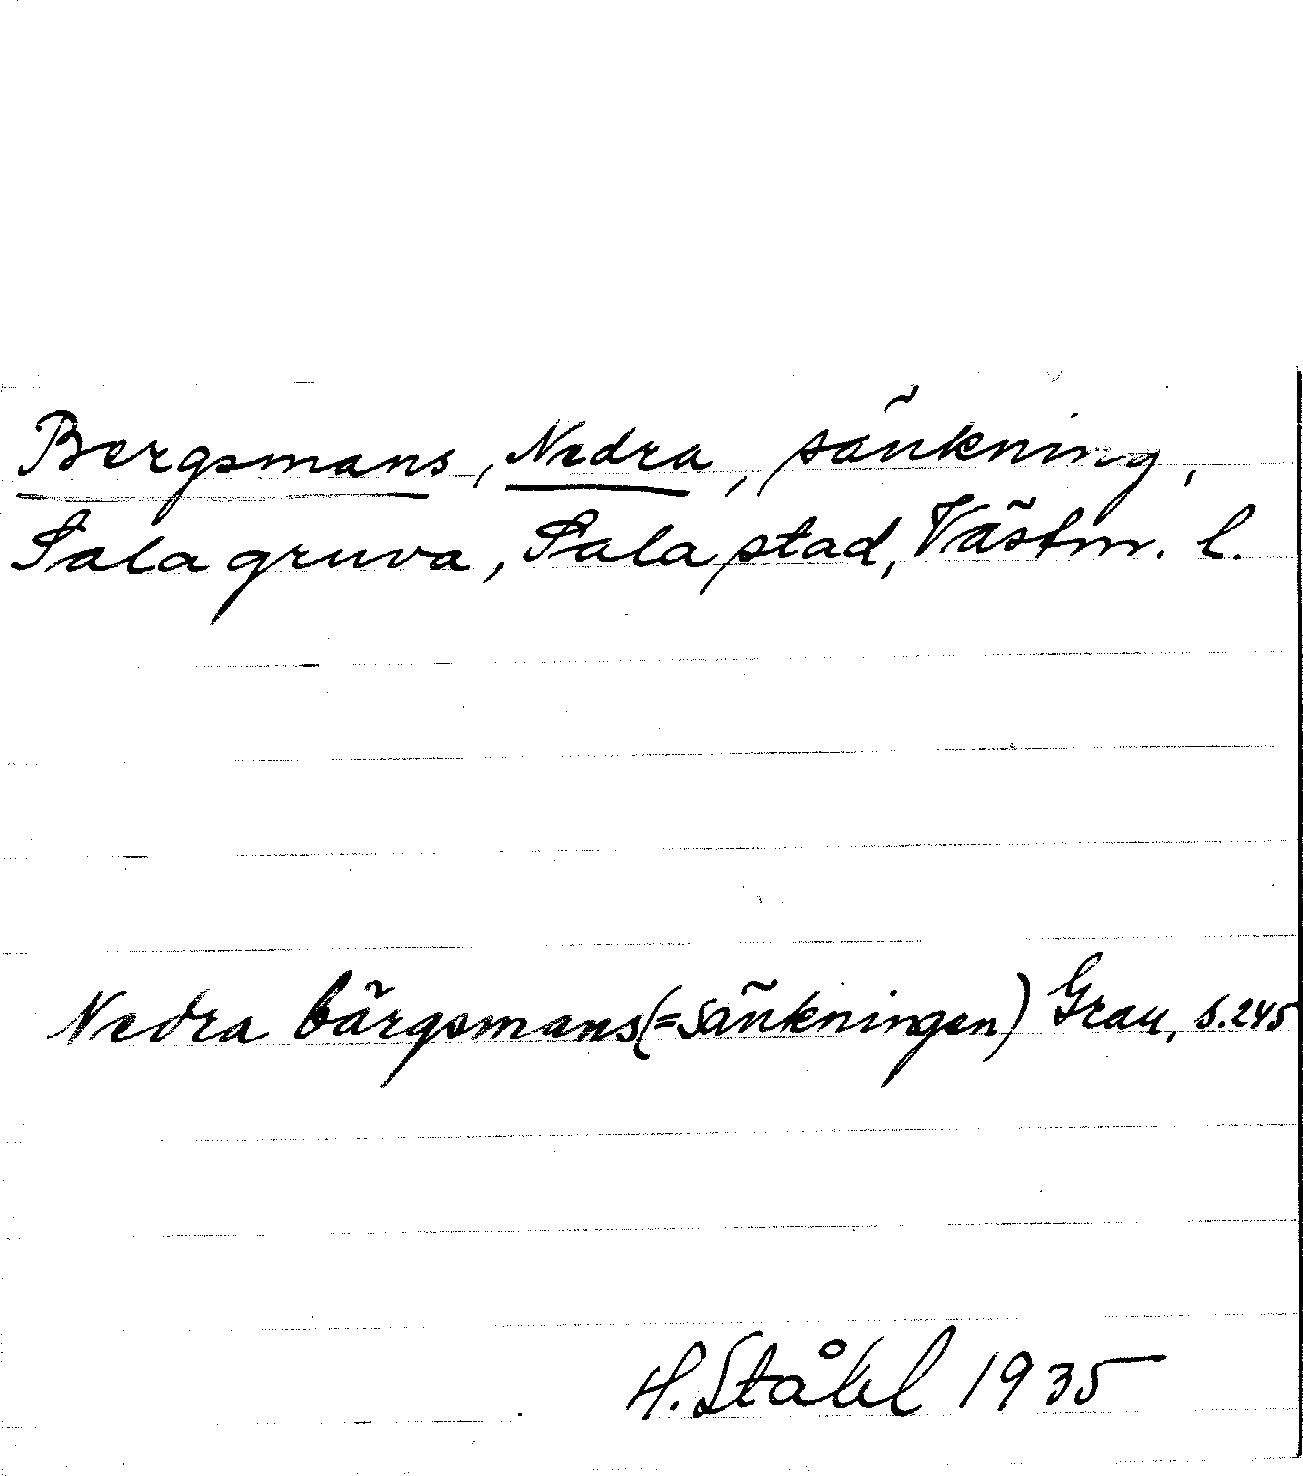 Bergsmans, Nedra, sänkning,
Sala gruva, Sala stad, Västm. l.
Nedra bärgsmans (=sänkningen) Grau, s. 245
H. Ståhl 1935